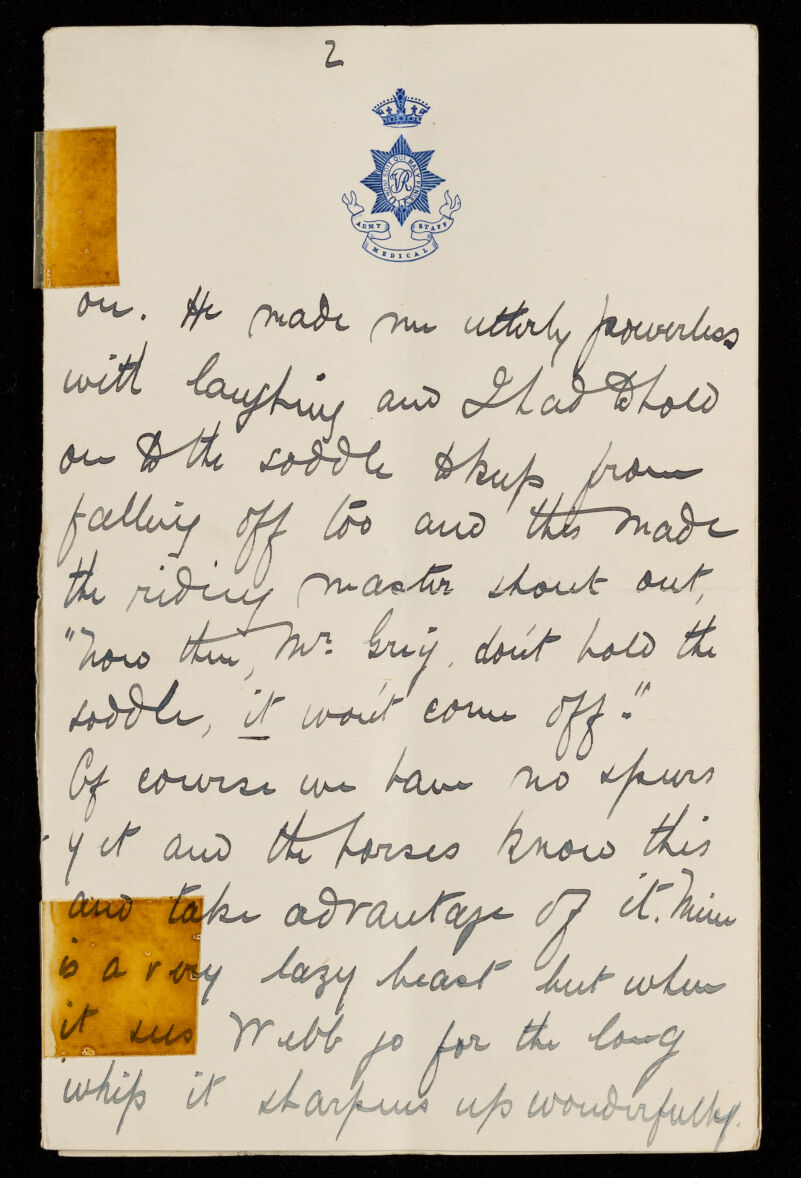 2
HONI SOIT QUI MAL Y PENSE
VR
ARMY MEDICAL STAFF
on. He made me utterly powerless
with laughing and I had to hold
on to the saddle to keep from
falling off too and this made
the riding master shout out,
"Now then, Mr. Grey, don't hold the
saddle, it won't come off."
Of course we have no spurs
yet and the horses know this
and take advantage of it. Mine
is a very lazy beast but when
it sees Webb go for the long
whip it sharpens up wonderfully.